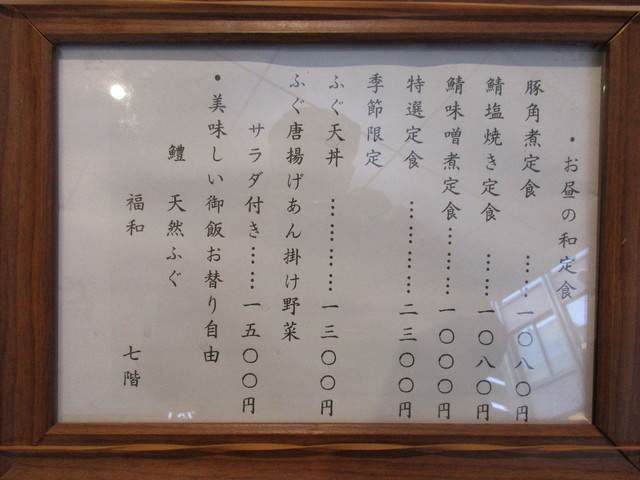 ・お昼の和定食
豚角煮定食 ……一〇八〇円
鯖塩焼き定食 ……一〇八〇円
鯖味噌煮定食………一〇〇〇円
特選定食 …………二三〇〇円
季節限定
ふぐ天丼 …………一三〇〇円
ふぐ唐揚げあん掛け野菜
サラダ付き……一五〇〇円
・美味しい御飯お替り自由
鱧 天然ふぐ
福和 七階